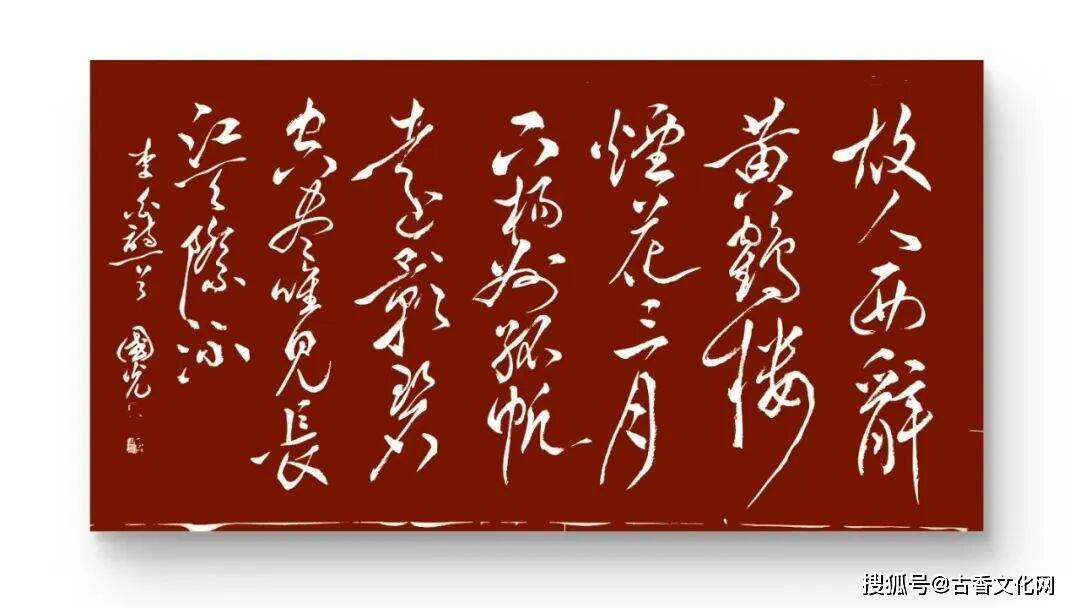 故人西辭
黄鶴樓
煙花三月
下揚州孤帆
遠影碧
空盡唯見長
江天際流
李白詩一首
國光
搜狐号@古香文化网